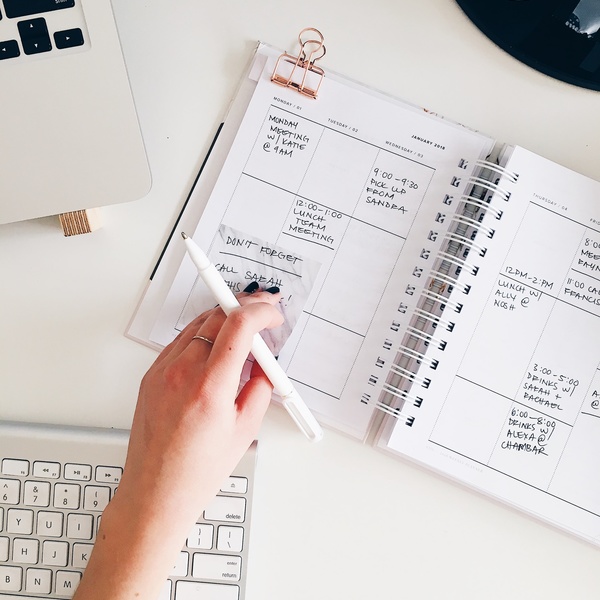 JANUARY 2018
MONDAY / 01
TUESDAY / 02
WEDNESDAY / 03
MONDAY
MEETING
W/ KATIE
@ 9AM
9:00-9:30
PICK UP
FROM
SANDRA
12:00-1:00
LUNCH
TEAM
MEETING
DON'T FORGET
CALL SARAH
THURSDAY / 04
12PM-2PM
LUNCH W/
ALLY @
NOSH
3:00-5:00
DRINKS W/
SARAH +
RACHAEL
6:00-8:00
DRINKS W/
ALEXA @
CHAMBAR
11:00
6 & 7 * 8 ( 9
Y U I
H J K
B N M
delete
enter
return